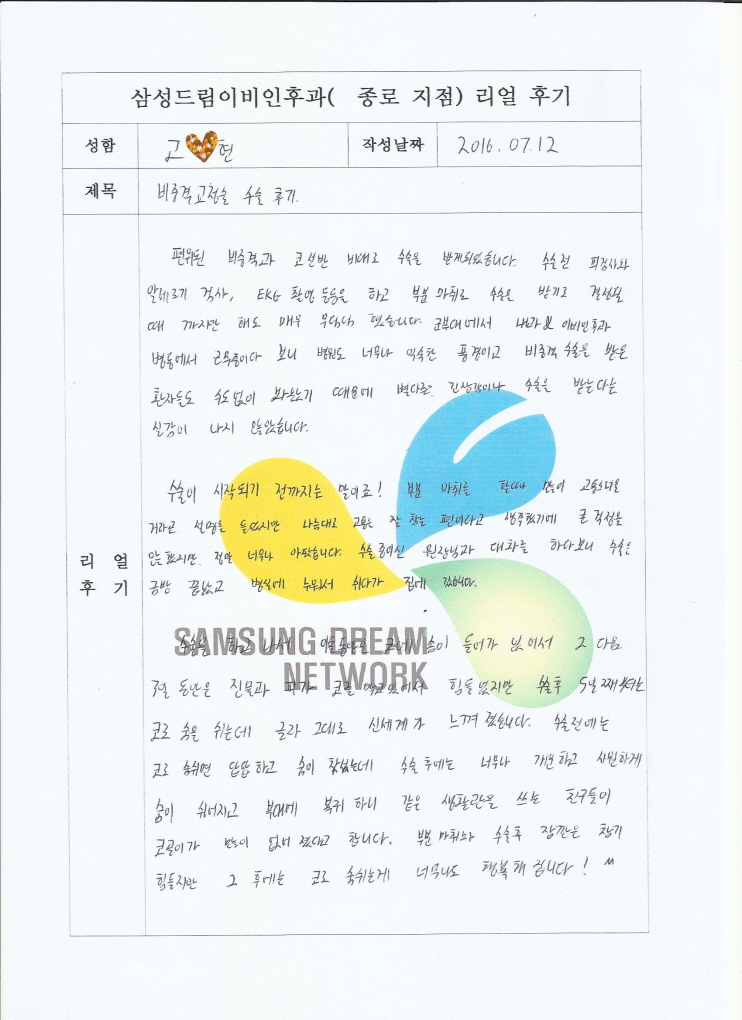 삼성드림이비인후과( 종로 지점) 리얼 후기
성함 고 현 작성날짜 2016. 07. 12
제목 비중격교정술 수술 후기.
편위된 비중격과 코선반 비대로 수술을 받게되었습니다. 수술전 피검사와
알레르기 검사, EKG 촬영 등등을 하고 부분 마취로 수술은 받기로 결정될
때 까지만 해도 매우 무덤덤 했습니다. 군부대에서 내과 및 이비인후과
병동에서 근무중이다 보니 병원도 너무나 익숙한 풍경이고 비중격 수술을 받은
환자들도 수도없이 봐왔기 때문에 별다른 긴장감이나 수술을 받는다는
실감이 나지 않았습니다.
수술이 시작되기 전까지는 말이죠! 부분 마취를 할때 많이 고통스러울
거라고 설명을 들었지만 나름대로 고통은 잘 참는 편이라고 생각했기에 큰 걱정을
않했지만 정말 너무나 아팠습니다. 수술 중에 원장님과 대화를 하다보니 수술은
금방 끝났고 병실에 누워서 쉬다가 집에 갔습니다.
리 얼
후 기
수술을 하고 나서 코에 솜이 들어가 있어서 그 다음
동안은 진물과 피가 코를 막고있어서 힘들었지만 수술후 5일 째부터는
코로 숨을 쉬는데 글라 그대로 신세계가 느껴 졌습니다. 수술전에는
코로 숨쉬면 답답하고 숨이 찼었는데 수술 후에는 너무나 개운하고 시원하게
숨이 쉬어지고 부대에 복귀 하니 같은 생활관을 쓰는 친구들이
코골이가 많이 없어 졌다고 합니다. 부분 마취와 수술후 잠깐은 참기
힘들지만 그 후에는 코로 숨쉬는게 너무나도 행복해 집니다! ^^
SAMSUNG DREAM
NETWORK